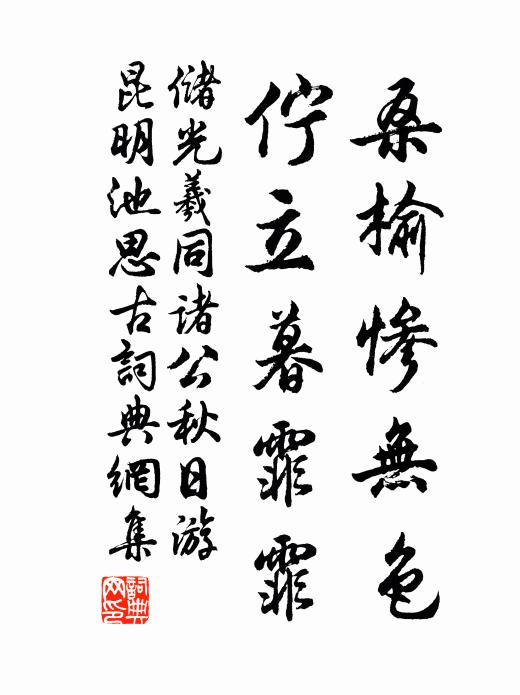 桑榆慘無色
佇立暮霏霏
儲光羲同諸公秋日游
昆明池思古詞典網集
詞典
网印